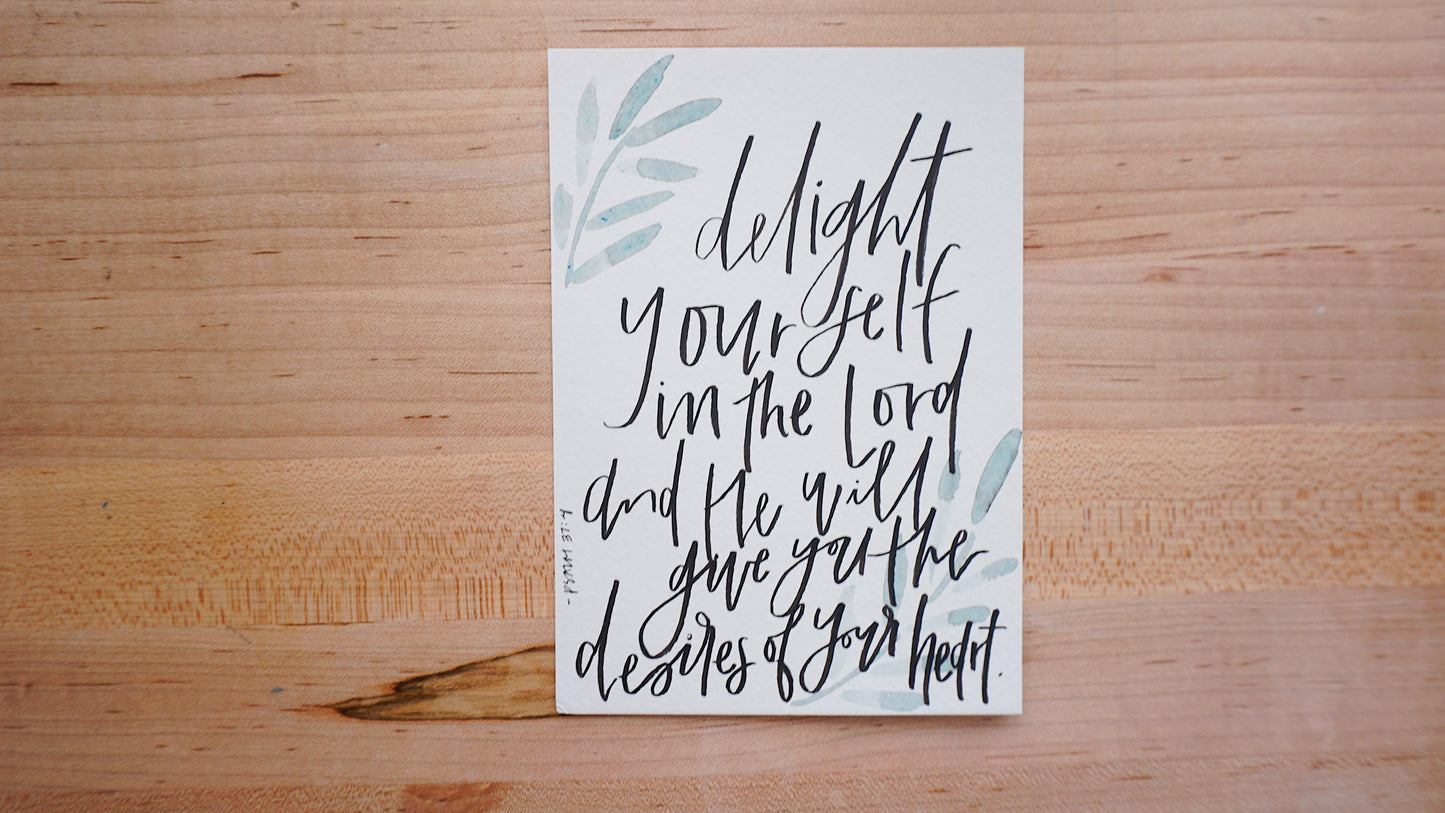 delight
yourself
in the Lord
and He will
give you the
desires of your heart.